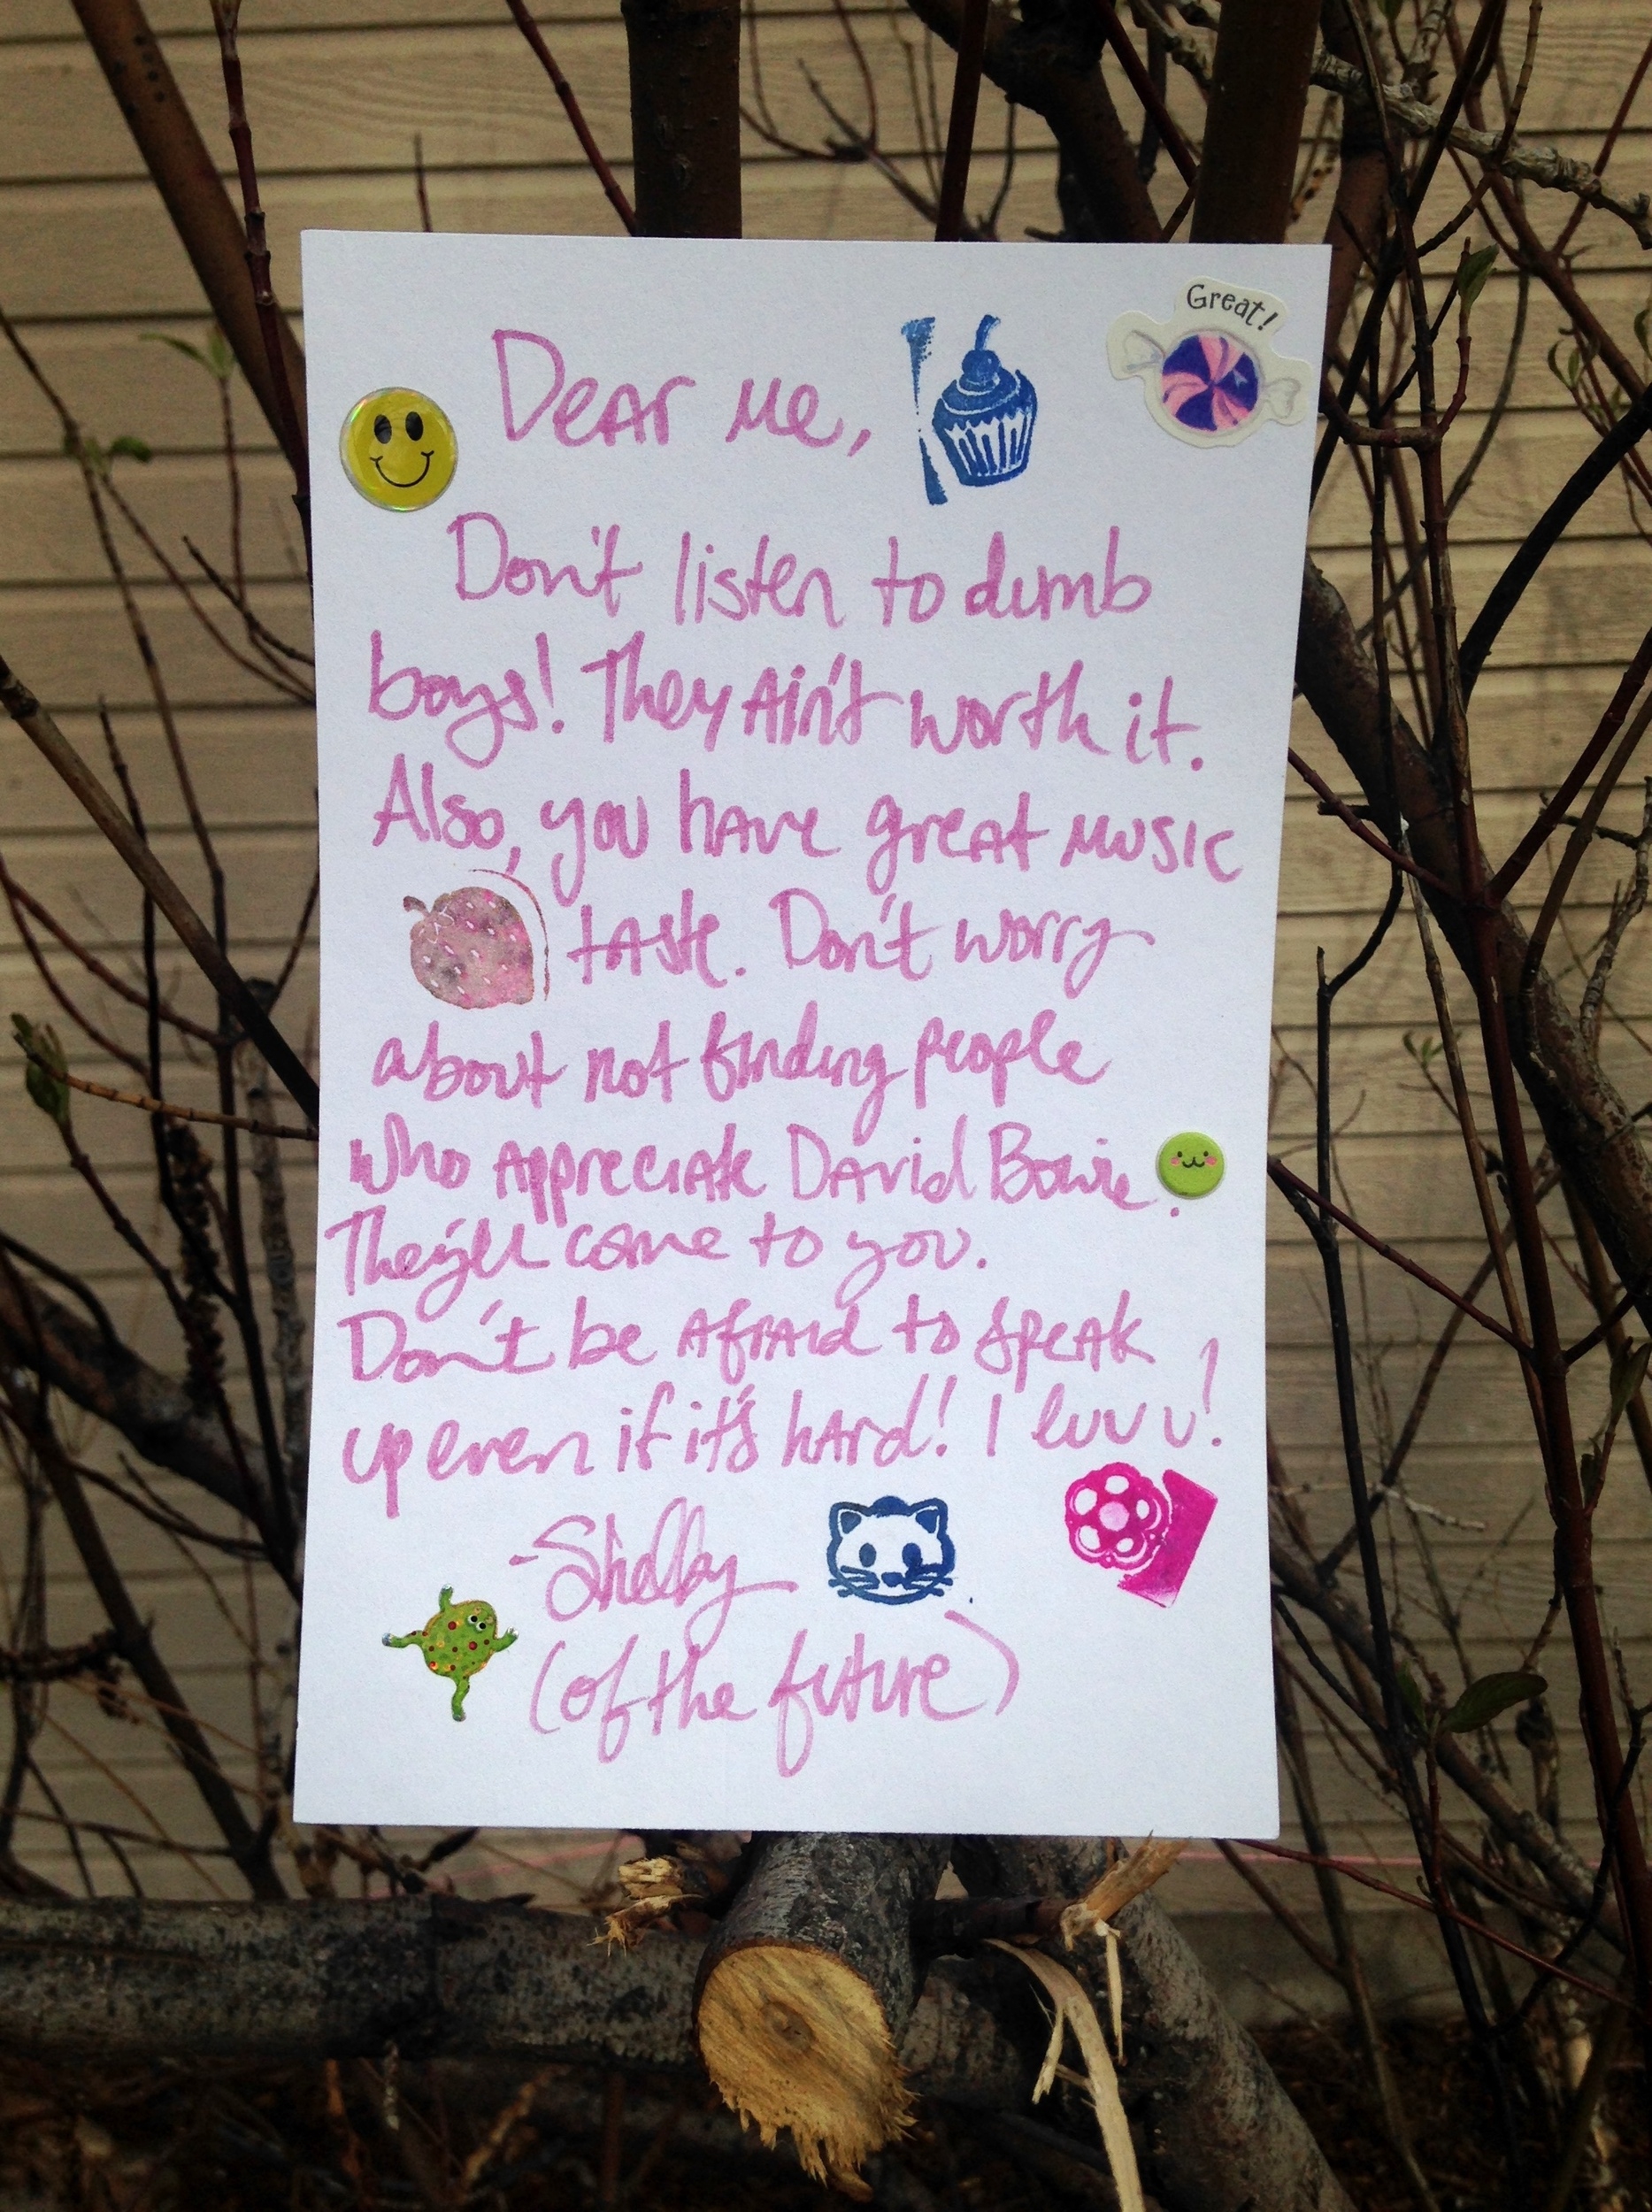 Great!
Dear me,
Don't listen to dumb
boys! They Ain't worth it.
Also, you have great music
taste. Don't worry
about not finding people
who appreciate David Bowie.
They'll come to you.
Don't be afraid to speak
up even if it's hard! I luv u!
-Shelby
(of the future)